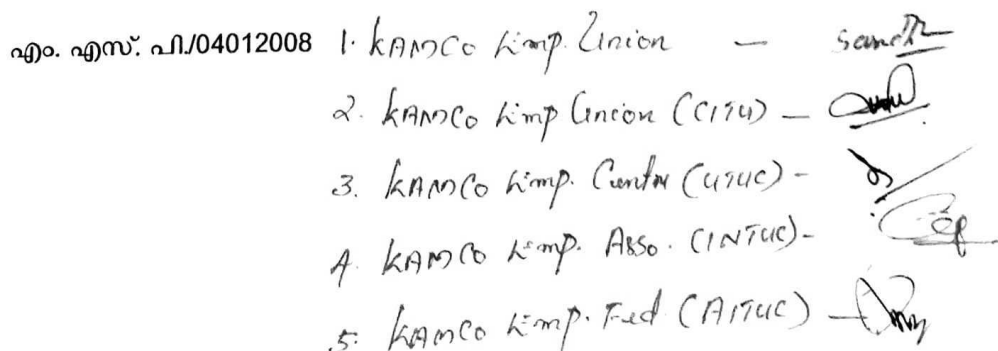 എം. എസ്. പി./04012008 1. KAMCO Emp. Union —
2. KAMCO Emp Union (CITU) —
3. KAMCO Emp. Centre (UTUC) -
4. KAMCO Emp. Asso. (INTUC) -
5. KAMCO Emp. Fed (AITUC) —